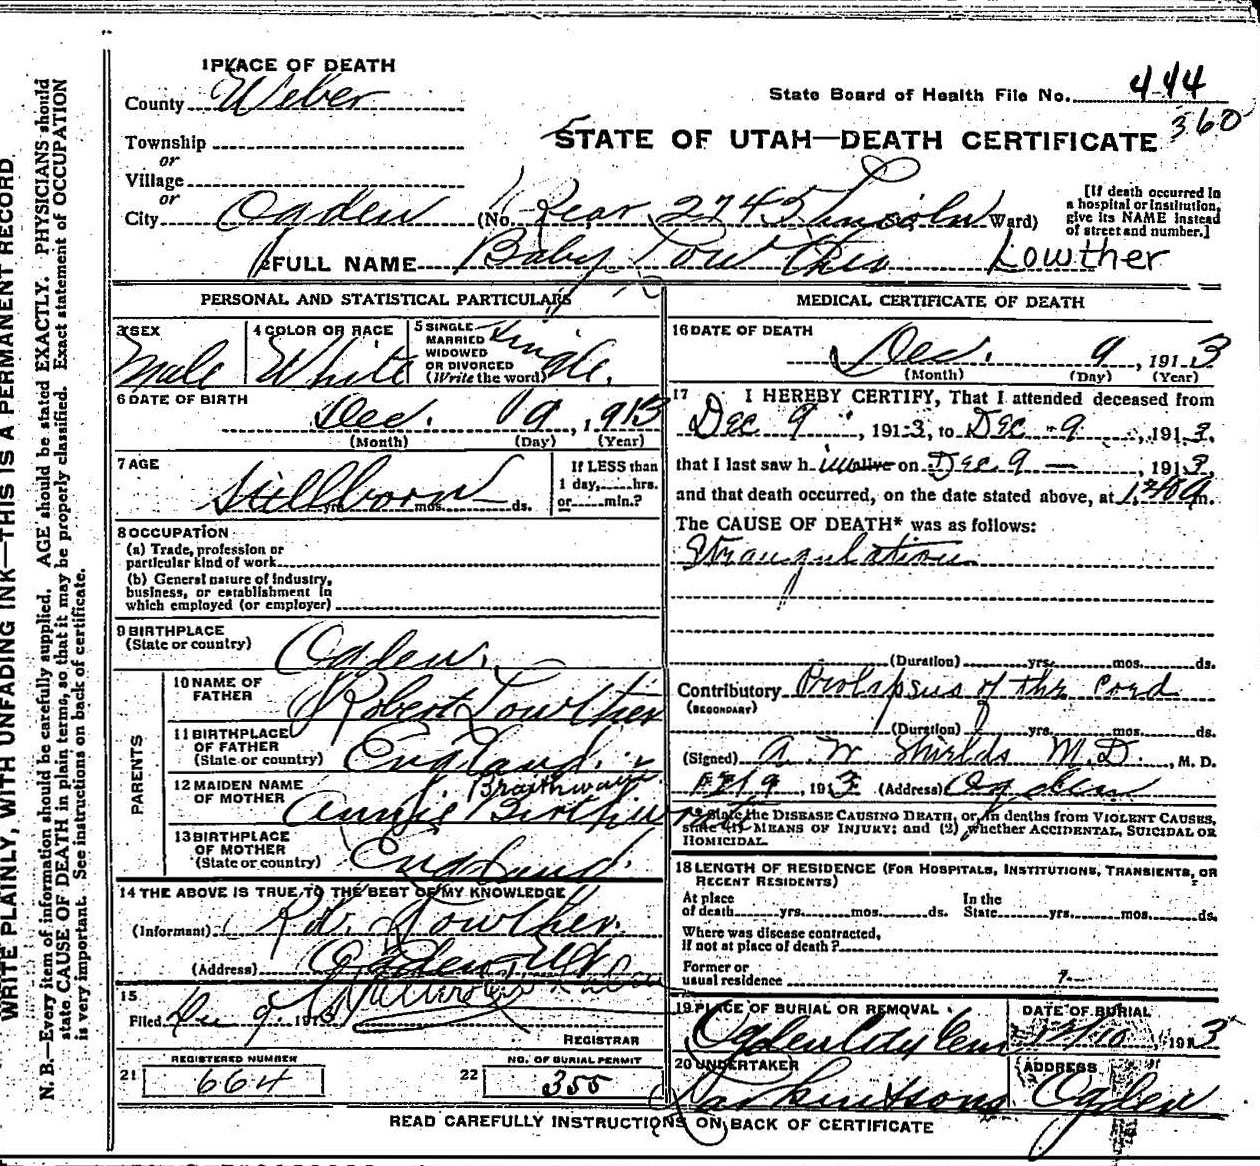 WRITE PLAINLY, WITH UNFADING INK—THIS IS A PERMANENT RECORD
N. B.—Every item of information should be carefully supplied. AGE should be stated EXACTLY. PHYSICIANS should
state CAUSE OF DEATH in plain terms, so that it may be properly classified. Exact statement of OCCUPATION
is very important. See instructions on back of certificate.
1 PLACE OF DEATH
County Weber
Township
or
Village
or
City Ogden (No. Rear 2745 Lincoln St. Ward)
State Board of Health File No. 444
360
STATE OF UTAH—DEATH CERTIFICATE
[If death occurred in
a hospital or institution,
give its NAME instead
of street and number.]
2 FULL NAME Baby Lowther Lowther
PERSONAL AND STATISTICAL PARTICULARS
3 SEX
Male
4 COLOR OR RACE
White
5 SINGLE
MARRIED
WIDOWED
OR DIVORCED
(Write the word)
Single.
6 DATE OF BIRTH
Dec. 9, 1913
(Month) (Day) (Year)
7 AGE
Stillborn
yrs. mos. ds.
If LESS than
1 day, hrs.
or min.?
8 OCCUPATION
(a) Trade, profession or
particular kind of work
(b) General nature of industry,
business, or establishment in
which employed (or employer)
9 BIRTHPLACE
(State or country)
Ogden.
PARENTS
10 NAME OF
FATHER
Robert Lowther
11 BIRTHPLACE
OF FATHER
(State or country)
England.
12 MAIDEN NAME
OF MOTHER
Annie
13 BIRTHPLACE
OF MOTHER
(State or country)
England.
14 THE ABOVE IS TRUE TO THE BEST OF MY KNOWLEDGE
(Informant) Lowther.
(Address) Ogden, Ut
15
Filed Dec 9, 1913
REGISTRAR
REGISTERED NUMBER
21 664
NO. OF BURIAL PERMIT
22 355
MEDICAL CERTIFICATE OF DEATH
16 DATE OF DEATH
Dec. 9, 1913
(Month) (Day) (Year)
17 I HEREBY CERTIFY, That I attended deceased from
Dec 9, 1913, to Dec 9, 1913,
that I last saw h im alive on Dec. 9, 1913,
and that death occurred, on the date stated above, at m.
The CAUSE OF DEATH* was as follows:
Strangulation
(Duration) yrs. mos. ds.
Contributory Prolapsus of the Cord
(SECONDARY)
(Duration) yrs. mos. ds.
(Signed) A. W Shields M.D., M. D.
12/9, 1913 (Address) Ogden
* State the DISEASE CAUSING DEATH, or, in deaths from VIOLENT CAUSES,
state (1) MEANS OF INJURY; and (2) whether ACCIDENTAL, SUICIDAL OR
HOMICIDAL.
18 LENGTH OF RESIDENCE (FOR HOSPITALS, INSTITUTIONS, TRANSIENTS, OR
RECENT RESIDENTS)
At place
of death yrs. mos. ds.
In the
State yrs. mos. ds.
Where was disease contracted,
if not at place of death?
Former or
usual residence
19 PLACE OF BURIAL OR REMOVAL
Ogden City Cem
DATE OF BURIAL
12/10, 1913
20 UNDERTAKER
ADDRESS
Ogden
READ CAREFULLY INSTRUCTIONS ON BACK OF CERTIFICATE